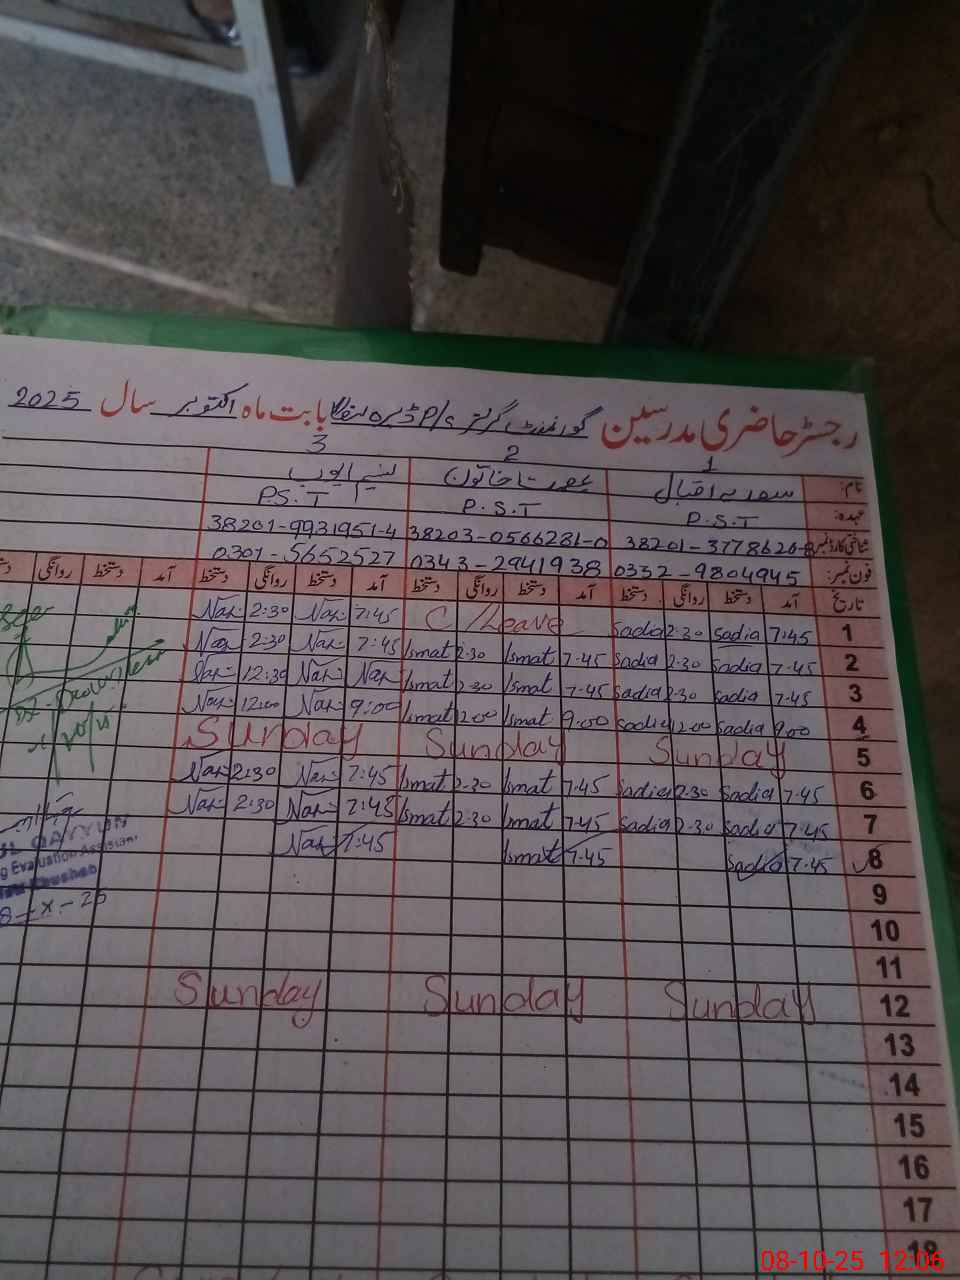 رجسٹر حاضری مدرسین گورنمنٹ گرلز P/S ڈیرہ بابت ماہ اکتوبر سال 2025
1 2 3
نام: سعدیہ اقبال عصمت خاتون
عہدہ: P.S.T P.S.T P.S.T
شناختی کارڈ نمبر 38201-3778626-8 38203-0566281-0 38201-9931951-4
فون نمبر: 0332-9804945 0343-2941938 0301-5652527
تاریخ آمد دستخط روانگی دستخط آمد دستخط روانگی دستخط آمد دستخط روانگی دستخط آمد دستخط روانگی
1 7:45 Sadia 2:30 Sadia C/Leave 7:45 Nar 2:30 Nar
2 7.45 Sadia 2.30 Sadia 7.45 Ismat 2.30 Ismat 7:45 Nar 2:30 Nar
3 7.45 Sadia 2.30 Sadia 7.45 Ismat 2.30 Ismat Nar Nar 12:30 Nar
4 9.00 Sadia 12.00 Sadia 9.00 Ismat 12.00 Ismat 9:00 Nar 12:00 Nar
5 Sunday Sunday Sunday
6 7.45 Sadia 2.30 Sadia 7.45 Ismat 2.30 Ismat 7:45 Nar 2:30 Nar
7 7.45 Sadia 2.30 Sadia 7.45 Ismat 2.30 Ismat 7:45 Nar 2:30 Nar
8 7.45 Sadia 7.45 Ismat 7:45 Nar
9
10
11
12 Sunday Sunday Sunday
13
14
15
16
17
18
QAYYUM
g Evaluation Assistant
Khushab
8-X-25
08-10-25 12:06